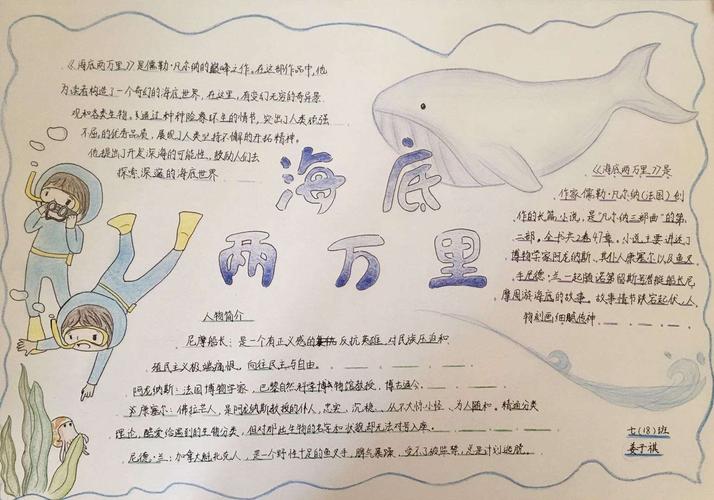 《海底两万里》是儒勒·凡尔纳的巅峰之作。在这部作品中,他
为读者构造了一个奇幻的海底世界,在这里,有变幻无穷的奇异景
观和各类生物。通过种种险象环生的情节,突出了人类依强
不屈的优秀品质,展现了人类坚持不懈的开拓精神。
他提出了开发深海的可能性、鼓励人们去
探索深邃的海底世界
海底
两万里
《海底两万里》是
作家儒勒·凡尔纳(法国)创
作的长篇小说,是"凡尔纳三部曲"的第
二部。全书共2卷47章。小说主要讲述了
博物学家阿龙纳斯、其仆人康塞尔以及鱼叉
手尼德·兰一起随诺第留斯号潜艇船长尼
摩周游海底的故事。故事情节跌宕起伏,人
物刻画细腻传神
人物简介
尼摩船长:是一个有正义感的反抗英雄,对民族压迫和
殖民主义极端痛恨,向往民主与自由。
阿龙纳斯:法国博物学家,巴黎自然科学博物馆教授,博古通今。
康塞尔:佛拉芒人,是阿龙纳斯教授的仆人,忠实,沉稳,从不大惊小怪、为人随和。精通分类
理论,酷爱给遇到的生物分类,但对那些生物的名字和状貌却无法对号入座。
尼德·兰:加拿大魁北克人,是一个野性十足的鱼叉手,脾气暴躁,受不了被监禁,总是计划逃脱。
七(18)班
姜子祺